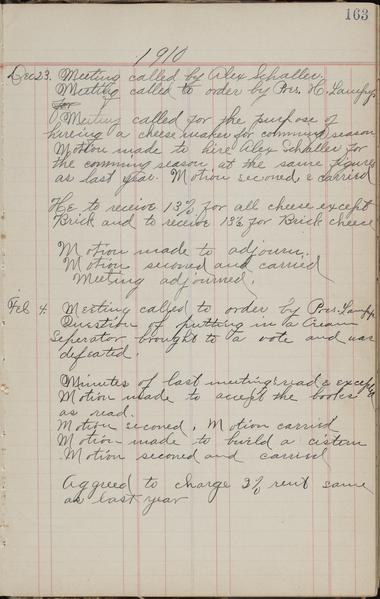 163
1910
Dec 23. Meeting called by Alex Schaller.
Meeting called to order by Pres. H. Lampy.
for
Meeting called for the purpose of
hireing a cheese maker for comming season
Motion made to hire Alex Schaller for
the comming season at the same figures
as last year. Motion seconed & carried
He to receive 13% for all cheese except
Brick and to receive 1 for Brick cheese
Motion made to adjourn.
Motion seconed and carried
Meeting adjourned.
Feb 4. Meeting called to order by Pres. Lampy.
Question of putting in a Cream
Seperator brought to a vote and was
defeated.
Minutes of last meeting read & excepted
Motion made to accept the books
as read.
Motion seconed, Motion carried
Motion made to build a cistern
Motion seconed and carried
Aggreed to charge 3% rent same
as last year